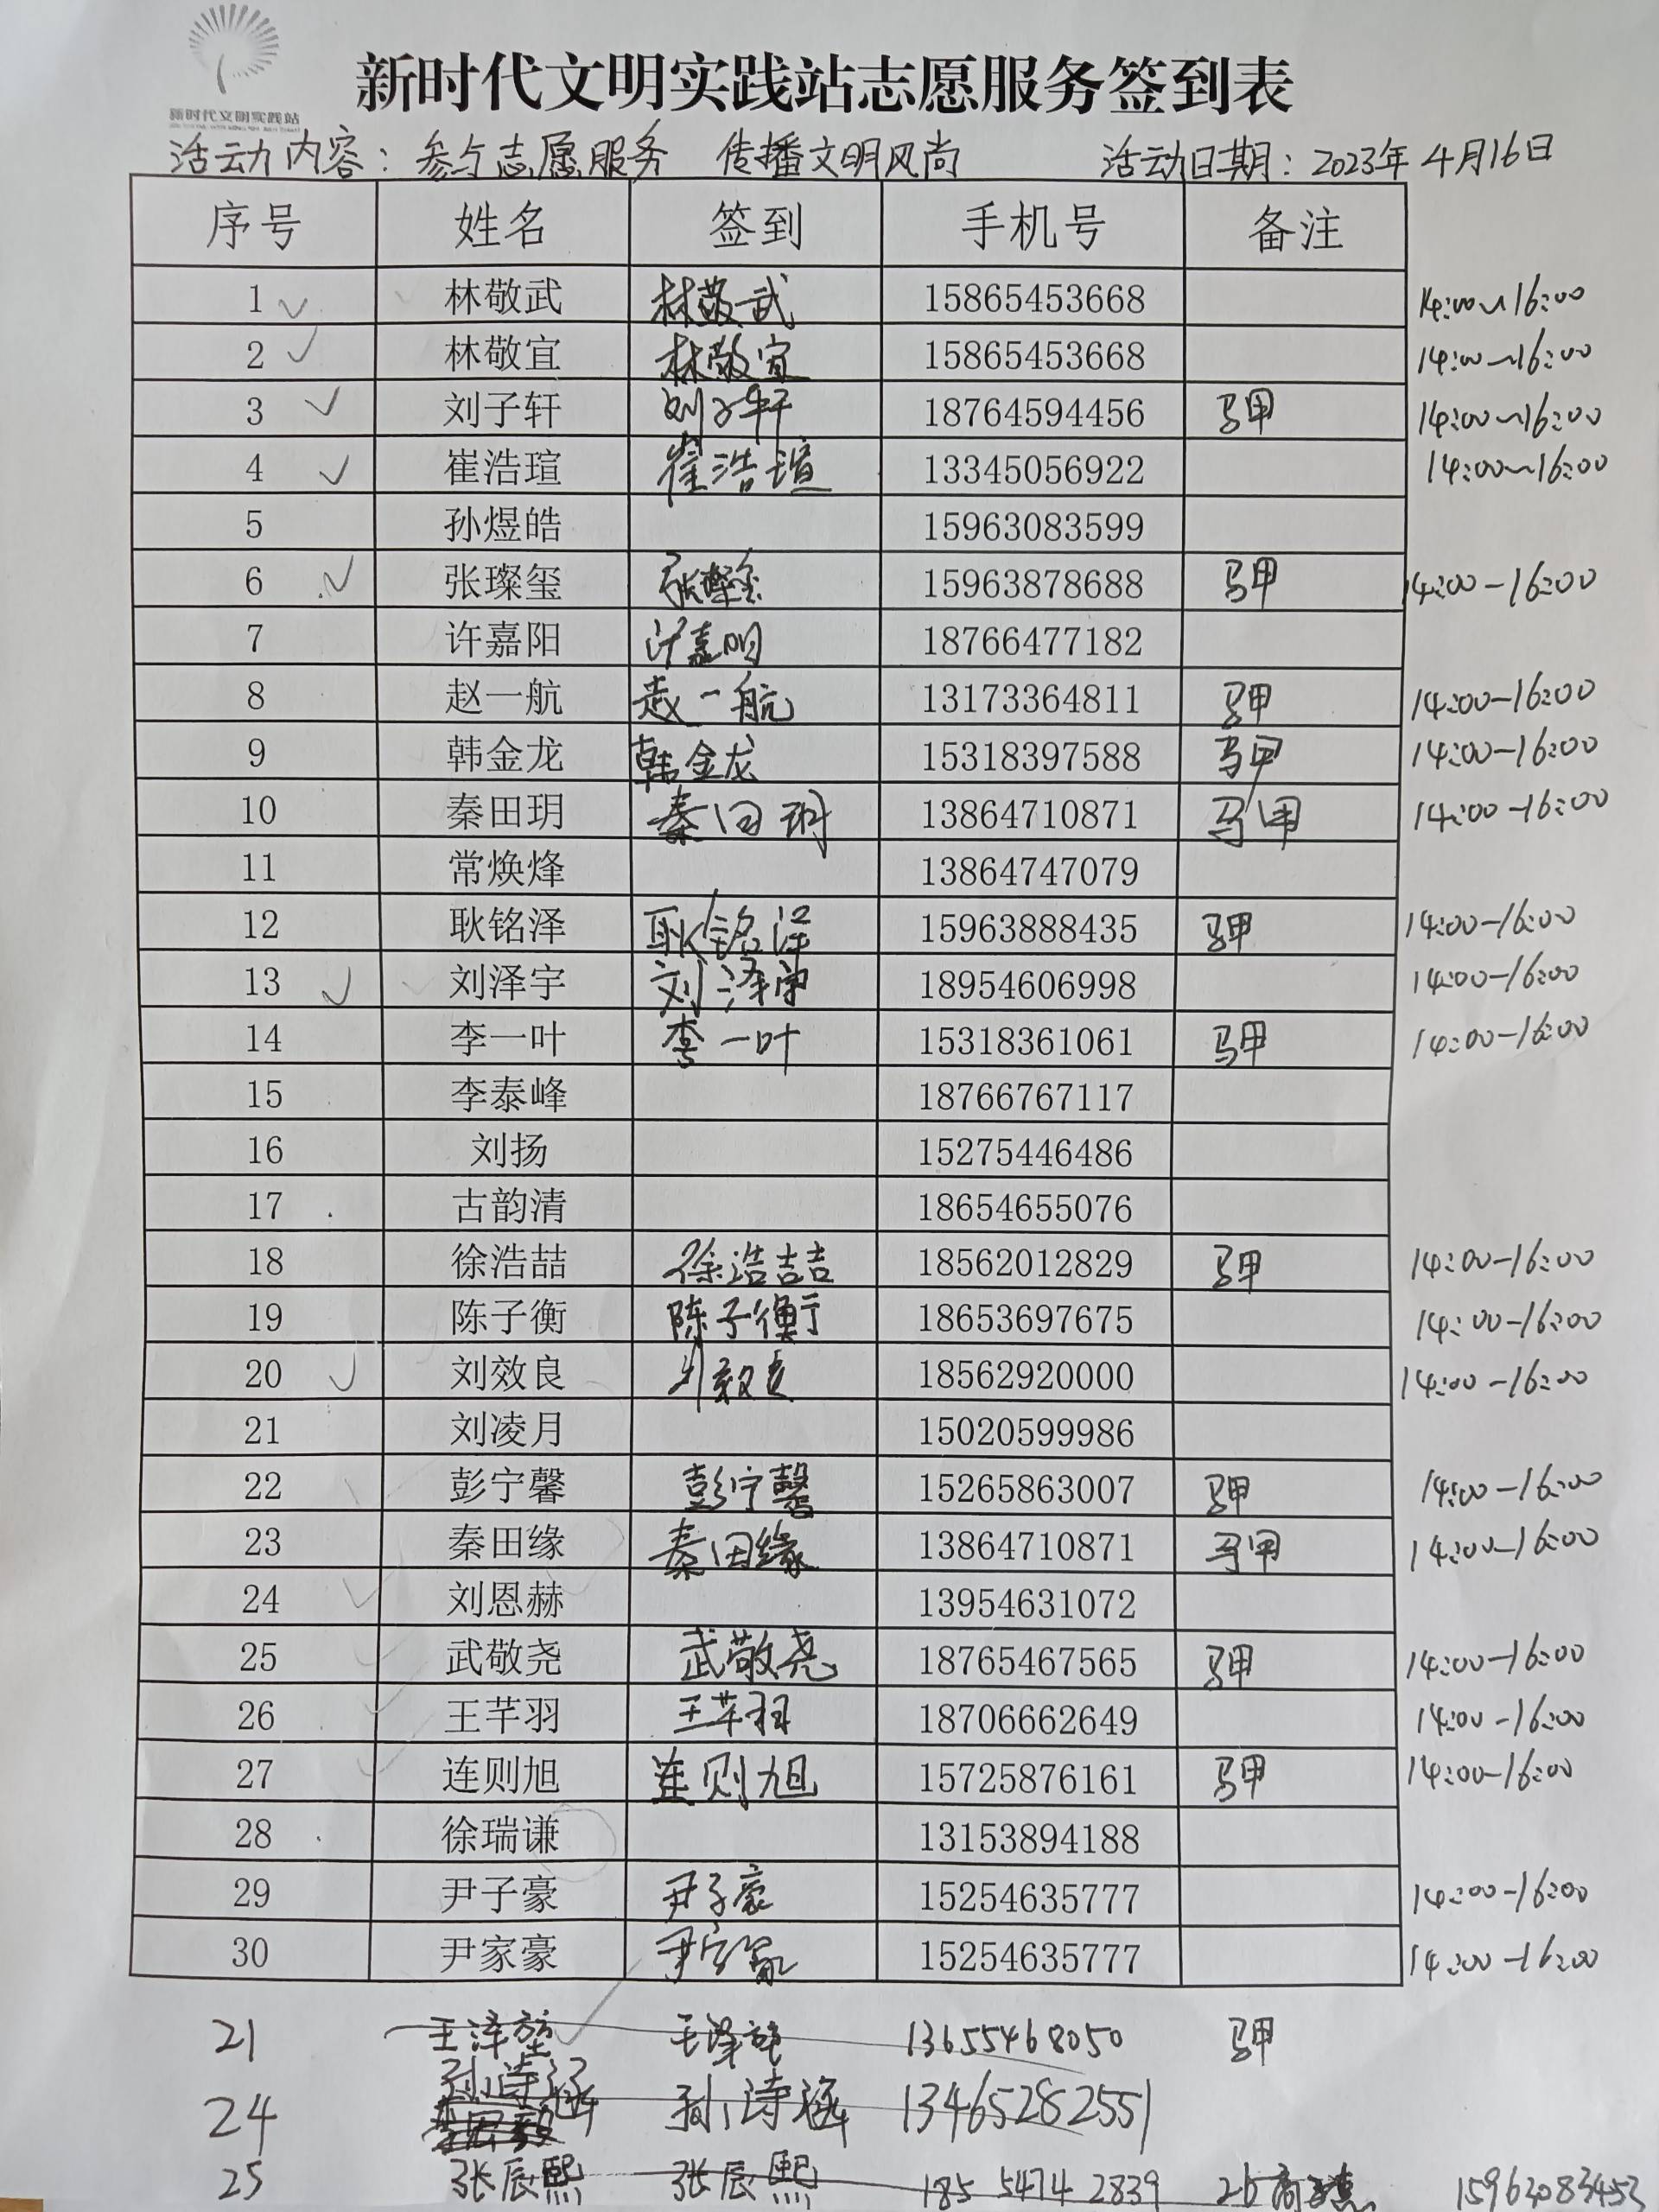 新时代文明实践站
新时代文明实践站志愿服务签到表
活动内容：参与志愿服务 传播文明风尚 活动日期：2023年4月16日
序号 姓名 签到 手机号 备注
1 林敬武 林敬武 15865453668 14:00~16:00
2 林敬宜 林敬宜 15865453668 14:00~16:00
3 刘子轩 刘子轩 18764594456 马甲 14:00~16:00
4 崔浩瑄 崔浩瑄 13345056922 14:00~16:00
5 孙煜皓 15963083599
6 张璨玺 张璨玺 15963878688 马甲 14:00-16:00
7 许嘉阳 许嘉阳 18766477182
8 赵一航 赵一航 13173364811 马甲 14:00-16:00
9 韩金龙 韩金龙 15318397588 马甲 14:00-16:00
10 秦田玥 秦田玥 13864710871 马甲 14:00-16:00
11 常焕烽 13864747079
12 耿铭泽 耿铭泽 15963888435 马甲 14:00-16:00
13 刘泽宇 刘泽宇 18954606998 14:00-16:00
14 李一叶 李一叶 15318361061 马甲 14:00-16:00
15 李泰峰 18766767117
16 刘扬 15275446486
17 古韵清 18654655076
18 徐浩喆 徐浩喆 18562012829 马甲 14:00-16:00
19 陈子衡 陈子衡 18653697675 14:00-16:00
20 刘效良 18562920000 14:00-16:00
21 刘凌月 15020599986
22 彭宁馨 彭宁馨 15265863007 马甲 14:00-16:00
23 秦田缘 秦田缘 13864710871 马甲 14:00-16:00
24 刘恩赫 13954631072
25 武敬尧 武敬尧 18765467565 马甲 14:00-16:00
26 王芊羽 王芊羽 18706662649 14:00-16:00
27 连则旭 连则旭 15725876161 马甲 14:00-16:00
28 徐瑞谦 13153894188
29 尹子豪 尹子豪 15254635777 14:00-16:00
30 尹家豪 尹家豪 15254635777 14:00-16:00
21 王泽堃 王泽堃 13655468050 马甲
24 孙诗涵 孙诗涵 13465282551
25 张辰熙 张辰熙 185 5474 2839 26 15963083453